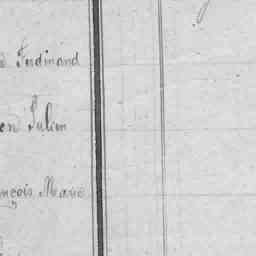 d Ferdinand
en Julien
ançois Marie